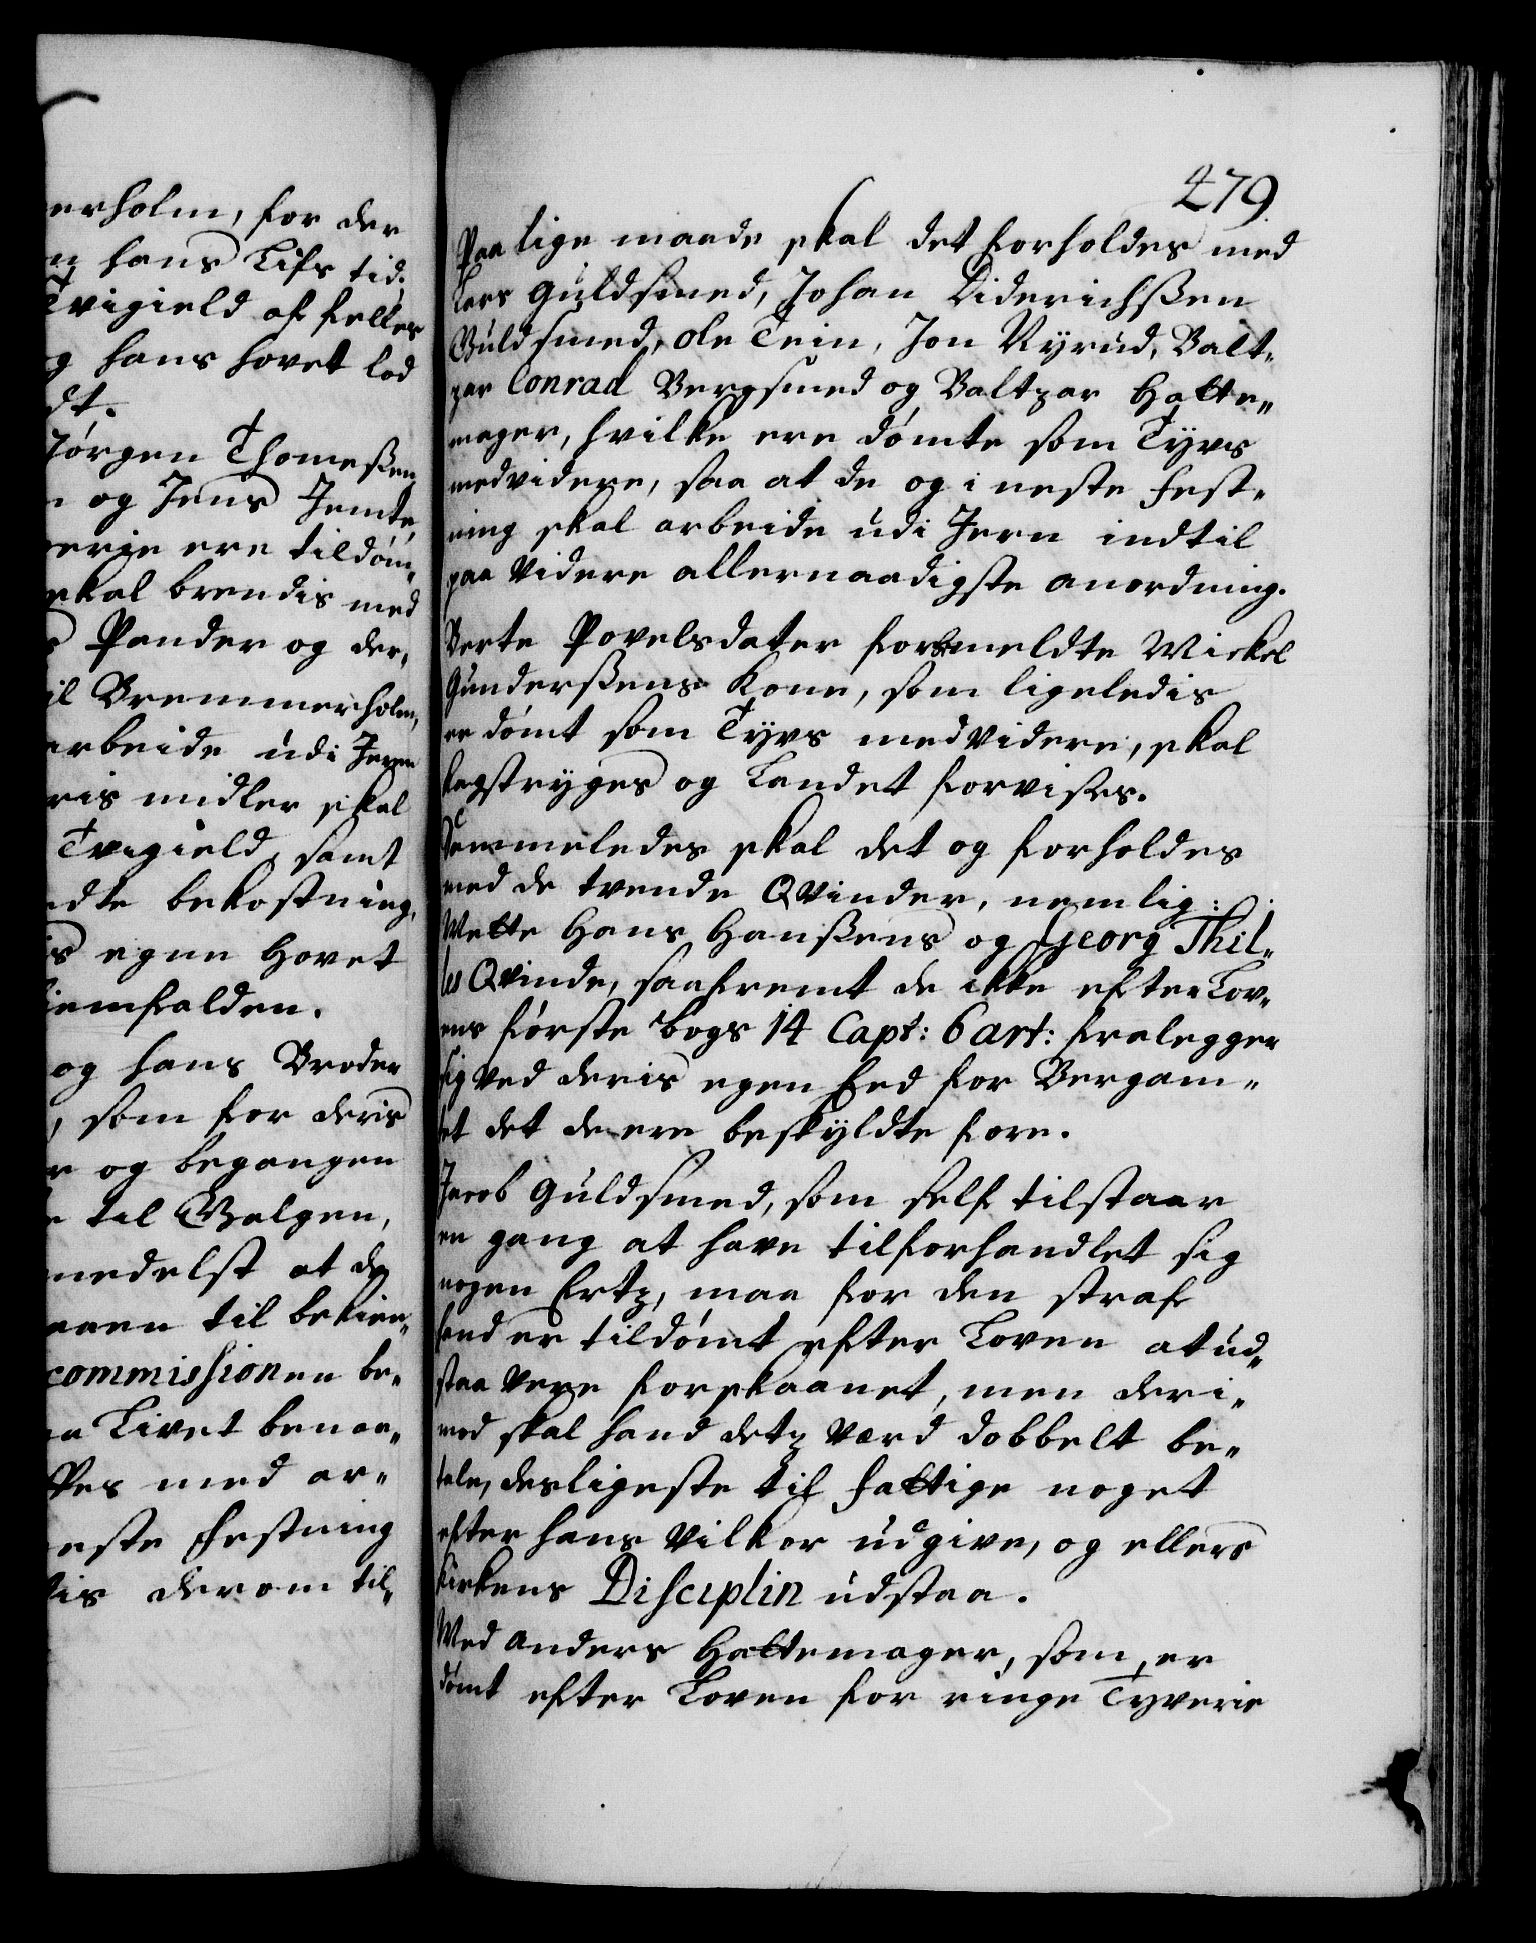 erholm, for der
n hans Lifs tid.
Tvigield af felles
g hans hovet lod
dt.
Jørgen Thomeßen
og Jens Jemte,
erie ere tildøm-
skal brendis med
Pander og der,
il Bremmerholm,
arbeide udi Jern
ris midler skal
Tvigield, samt
dte bekostning,
is egne Hovet
iemfalden.
og hans Broder
, som for deris
r og begangen
til Galgen,
medelst at de
aren til bekien-
commissionen be-
Livet benaa-
med ar-
neste Festning
is derom til-
479.
Paa lige maade skal det forholdes med
Lars Guldsmed, Johan Diderichßen
Guldsmed, Ole Tein, Jon Ryrud, Balt-
zar Conrad Bergsmed og Baltzar Hatte-
mager, hvilke ere dømte som Tyvs
medvidere, saa at de og i neste Fest-
ning skal arbeide udi Jern indtil
paa Videre allernaadigste anordning.
Berte Povelsdater formeldte Mickel
Gunderßens Kone, som ligeledis
er dømt som Tyvs medvidere, skal
kagstryges og Landet forvises.
Sammeledes skal det og forholdes
med de tvende Qvinder, nemlig:
Mette Hans Hanßens og Georg Thil-
les Qvinde, saafremt de ikke efter Lov-
ens første bogs 14 Capt: 6 art: fralegger
sig ved deris egen Eed for Bergam-
tet det de ere beskyldte fore.
Jacob Guldsmed, som self tilstaar
en gang at have tilforhandlet sig
nogen Ertz, maa for den straf
hand er tildømt efter Loven at ud-
staa Vere forskaanet, men deri-
mod skal hand detz Værd dobbelt be-
tale, desligeste til fattige noget
efter hans Vilkor udgive, og ellers
Kirkens Disciplin udstaa.
Med Anders Hattemager, som er
dømt efter Loven for ringe Tyverie